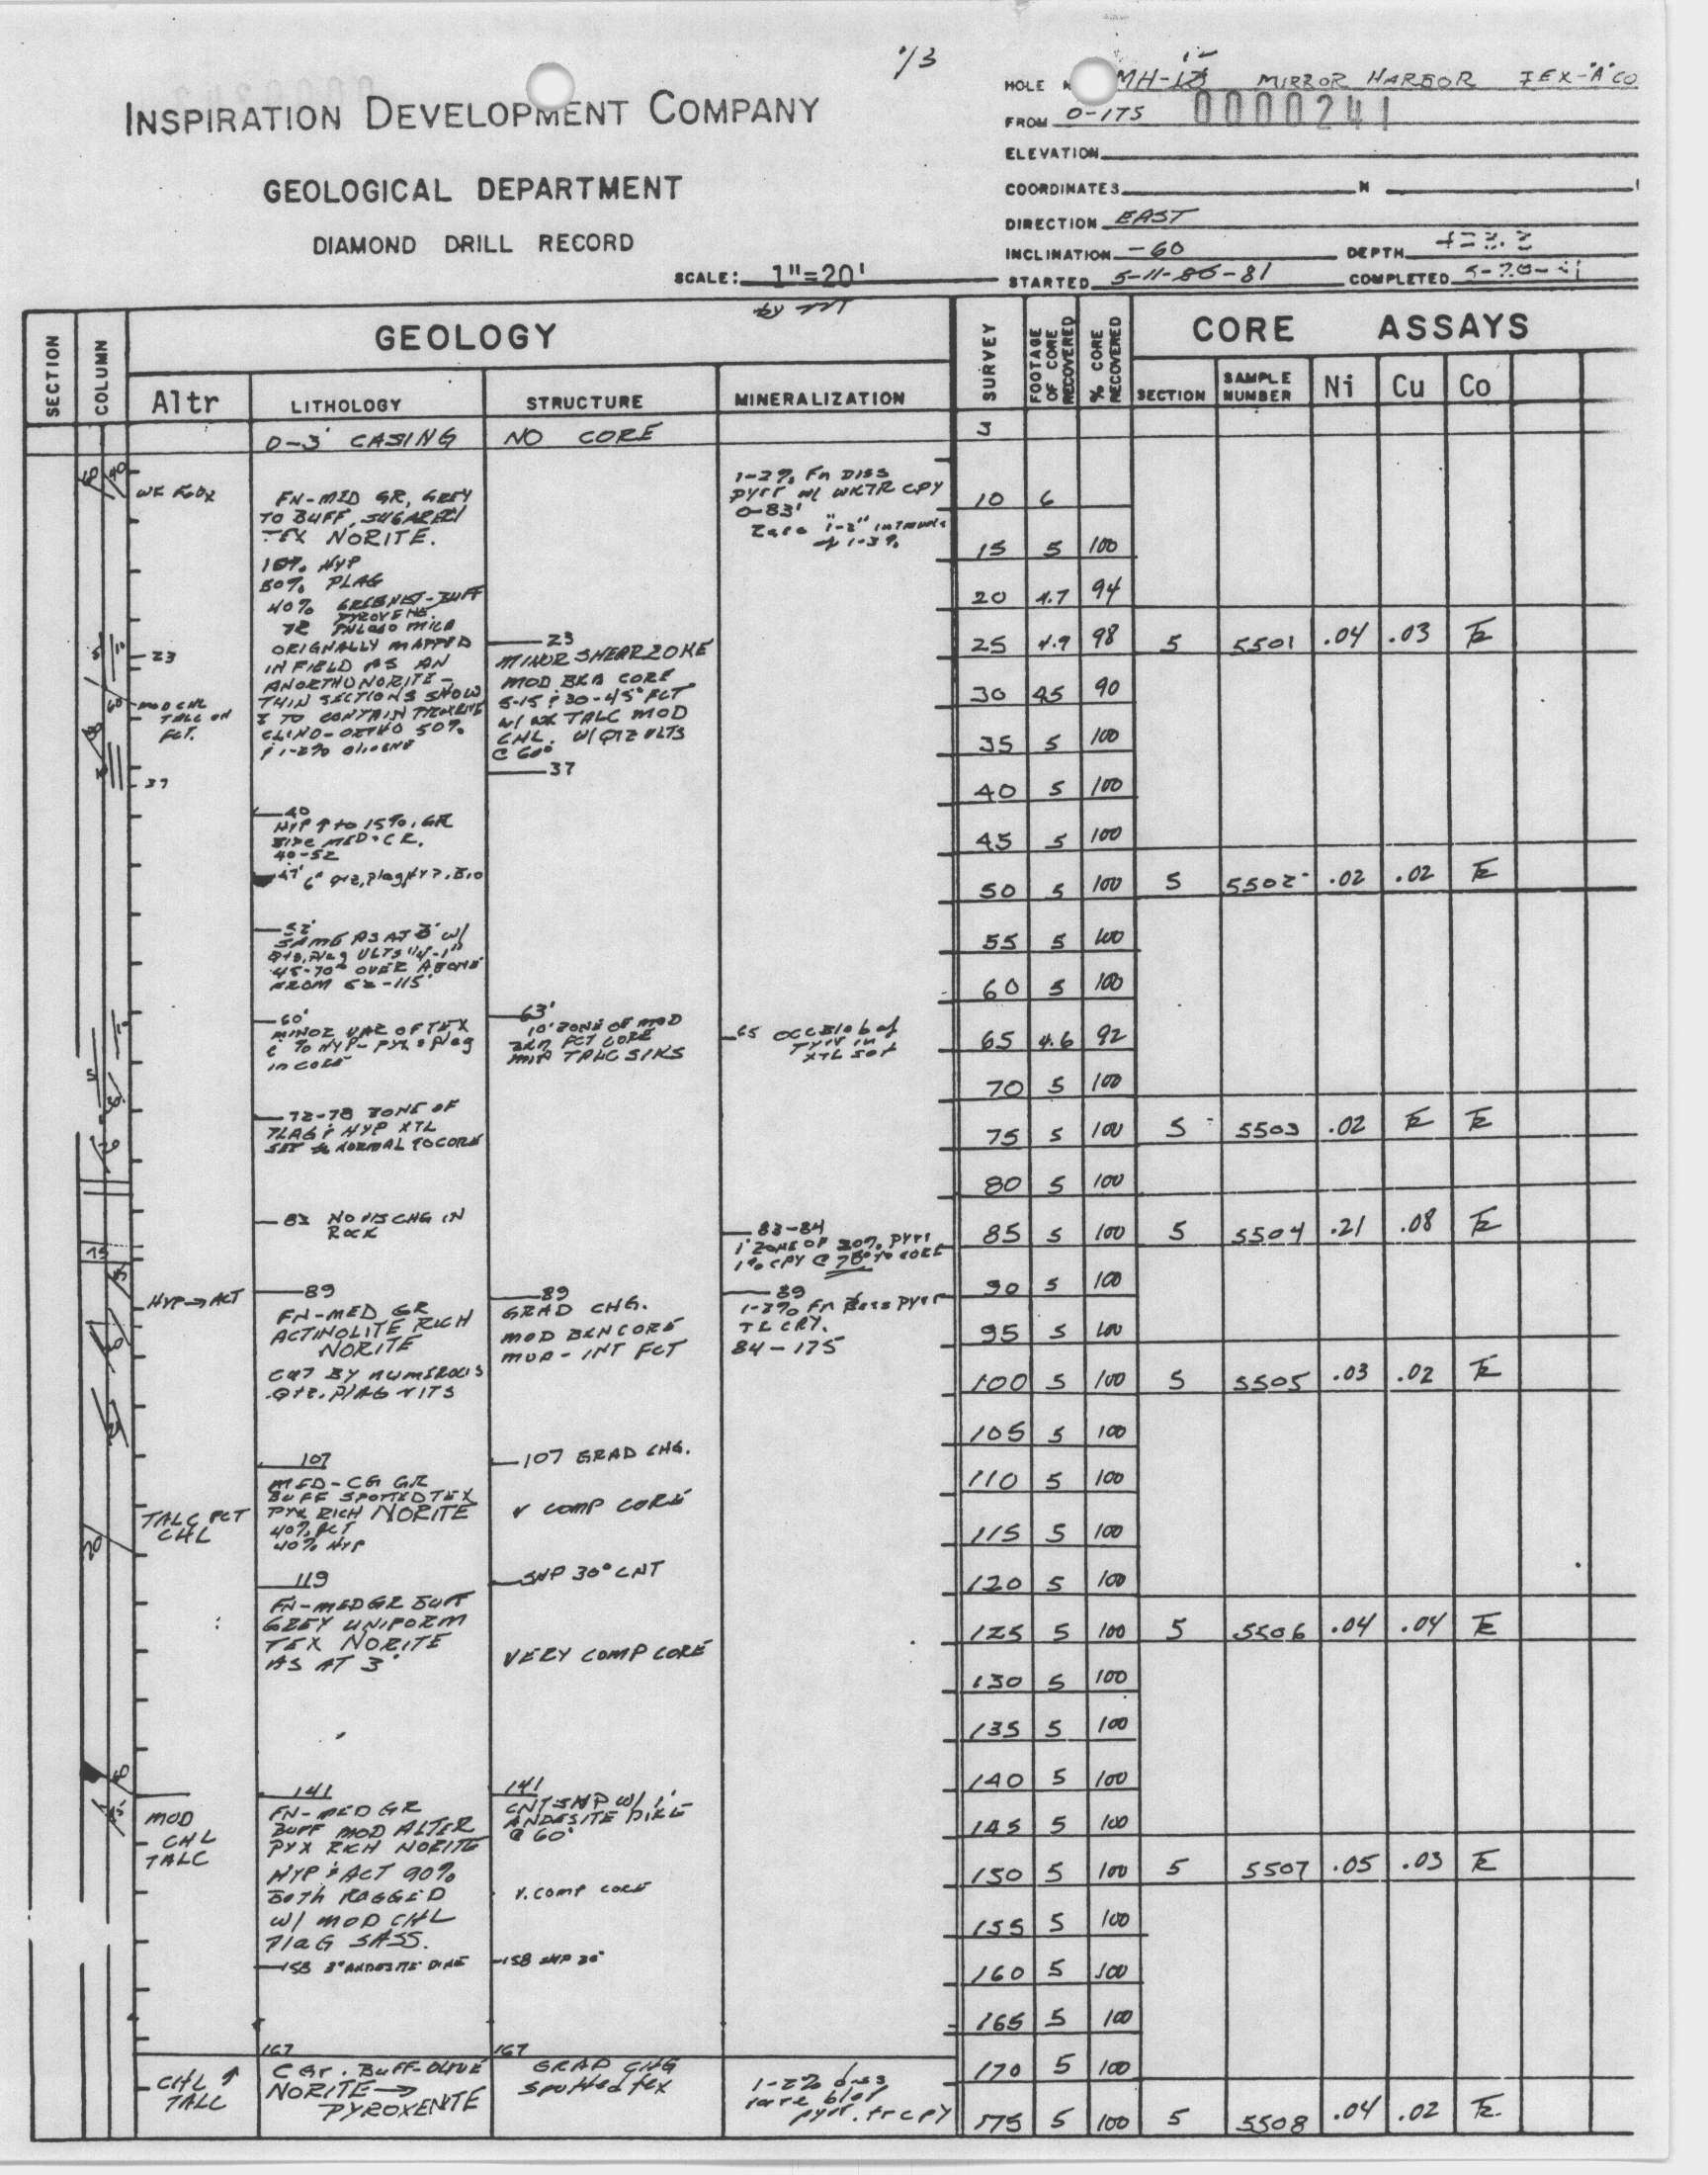 1/3
INSPIRATION DEVELOPMENT COMPANY
GEOLOGICAL DEPARTMENT
DIAMOND DRILL RECORD
SCALE: 1"=20'
by
HOLE MH-12 MIRROR HARBOR TEX-"A" CO
FROM 0-175 0000241
ELEVATION
COORDINATES N
DIRECTION EAST
INCLINATION -60 DEPTH
STARTED 5-11-80-81 COMPLETED
SECTION
COLUMN
GEOLOGY
Altr
LITHOLOGY
STRUCTURE
MINERALIZATION
SURVEY
FOOTAGE OF CORE RECOVERED
% CORE RECOVERED
CORE ASSAYS
SECTION
SAMPLE NUMBER
Ni
Cu
Co
WK
23
MOD CHL
TALC ON
FCT.
37
HYP→ACT
TALC FCT
CHL
MOD
CHL
TALC
CHL ↑
TALC
0-3' CASING
FN-MED GR, GREY
TO BUFF, SUGAREY
TEX NORITE.
10% HYP
50% PLAG
40% BUFF
PYROXENE.
TR PHLOGO MICA
ORIGNALLY MAPPED
IN FIELD AS AN
ANORTHONORITE-
THIN SECTIONS SHOW
TO CONTAIN PYROXENE
CLINO-ORTHO 50%
& 1-2% OLIVENE
40
HYP ↑ to 15%, GR
SIZE MED-
40-52
47' 6" qtz, plag, HYP, Bio
52'
SAME AS AT 3' W/
Qtz, Plag VLTS 1/4-1"
45-70° OVER ABOVE
FROM 52-115'
60'
MINOR VAR OF TEX
% HYP- PYX & Plag
in CORE
72-78 ZONE OF
PLAG & HYP XTL
SET NORMAL TO CORE
83 NO VIS CHG IN
ROCK
89
FN-MED GR
ACTINOLITE RICH
NORITE
CUT BY NUMEROUS
Qtz. PLAG VITS
107
MED-CG GR
BUFF SPOTTED TEX
PYX RICH NORITE
40% ACT
40% HYP
119
FN-MED GR BUFF
GREY UNIFORM
TEX NORITE
AS AT 3'
141
FN-MED GR
BUFF MOD ALTER
PYX RICH NORITE
HYP & ACT 90%
BOTH RAGGED
W/ MOD CHL
PlaG SASS.
158 3" ANDESITE DIKE
167
C Gr. BUFF-OLIVE
NORITE→
PYROXENITE
NO CORE
23
MINOR SHEAR ZONE
MOD BKN CORE
5-15 & 30-45° FCT
W/ WK TALC MOD
CHL. W/ QTZ VLTS
@ 60°
37
63'
10' ZONE OF MOD
BKN FCT CORE
MIN TALC SLKS
89
GRAD CHG.
MOD BKN CORE
MOD-INT FCT
107 GRAD CHG.
V COMP CORE
SHP 30° CNT
VERY COMP CORE
141
CNT SHP W/ 1'
ANDESITE DIKE
@ 60°
V. COMP CORE
158 SHP 30°
167
GRAD CHG
Spotted tex
1-2% Fn DISS
pyrr w/ WKTR CPY
0-83'
rare 1-2" intervals
of 1-3%
65 OCC Blob of
Pyrr in
XTL SET
83-84
1' ZONE OF 20% Pyrr
1% CPY @ 70° TO CORE
89
1-2% Fn Diss Pyrr
TR CPY.
84-175
1-2% diss
rare blot
pyrr. tr cpy
3
10 6
15 5 100
20 4.7 94
25 4.9 98 5 5501 .04 .03 Tr
30 4.5 90
35 5 100
40 5 100
45 5 100
50 5 100 5 5502 .02 .02 Tr
55 5 100
60 5 100
65 4.6 92
70 5 100
75 5 100 5 5503 .02 Tr Tr
80 5 100
85 5 100 5 5504 .21 .08 Tr
90 5 100
95 5 100
100 5 100 5 5505 .03 .02 Tr
105 5 100
110 5 100
115 5 100
120 5 100
125 5 100 5 5506 .04 .04 Tr
130 5 100
135 5 100
140 5 100
145 5 100
150 5 100 5 5507 .05 .03 Tr
155 5 100
160 5 100
165 5 100
170 5 100
175 5 100 5 5508 .04 .02 Tr.